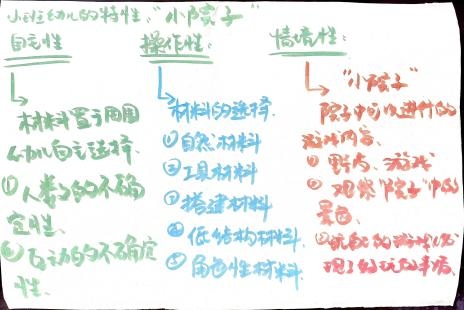 小班幼儿的特性："小院子"
自主性
材料置于周围
幼儿自主选择.
①人数的不确
定性、
②互动的不确定
性.
操作性：
材料的选择.
①自然材料
②工具材料
③搭建材料
④低结构材料.
⑤角色性材料.
情境性：
"小院子"
院子中可以进行的
游戏内容.
①野肉、游戏
②观察"院子"中的
景色.